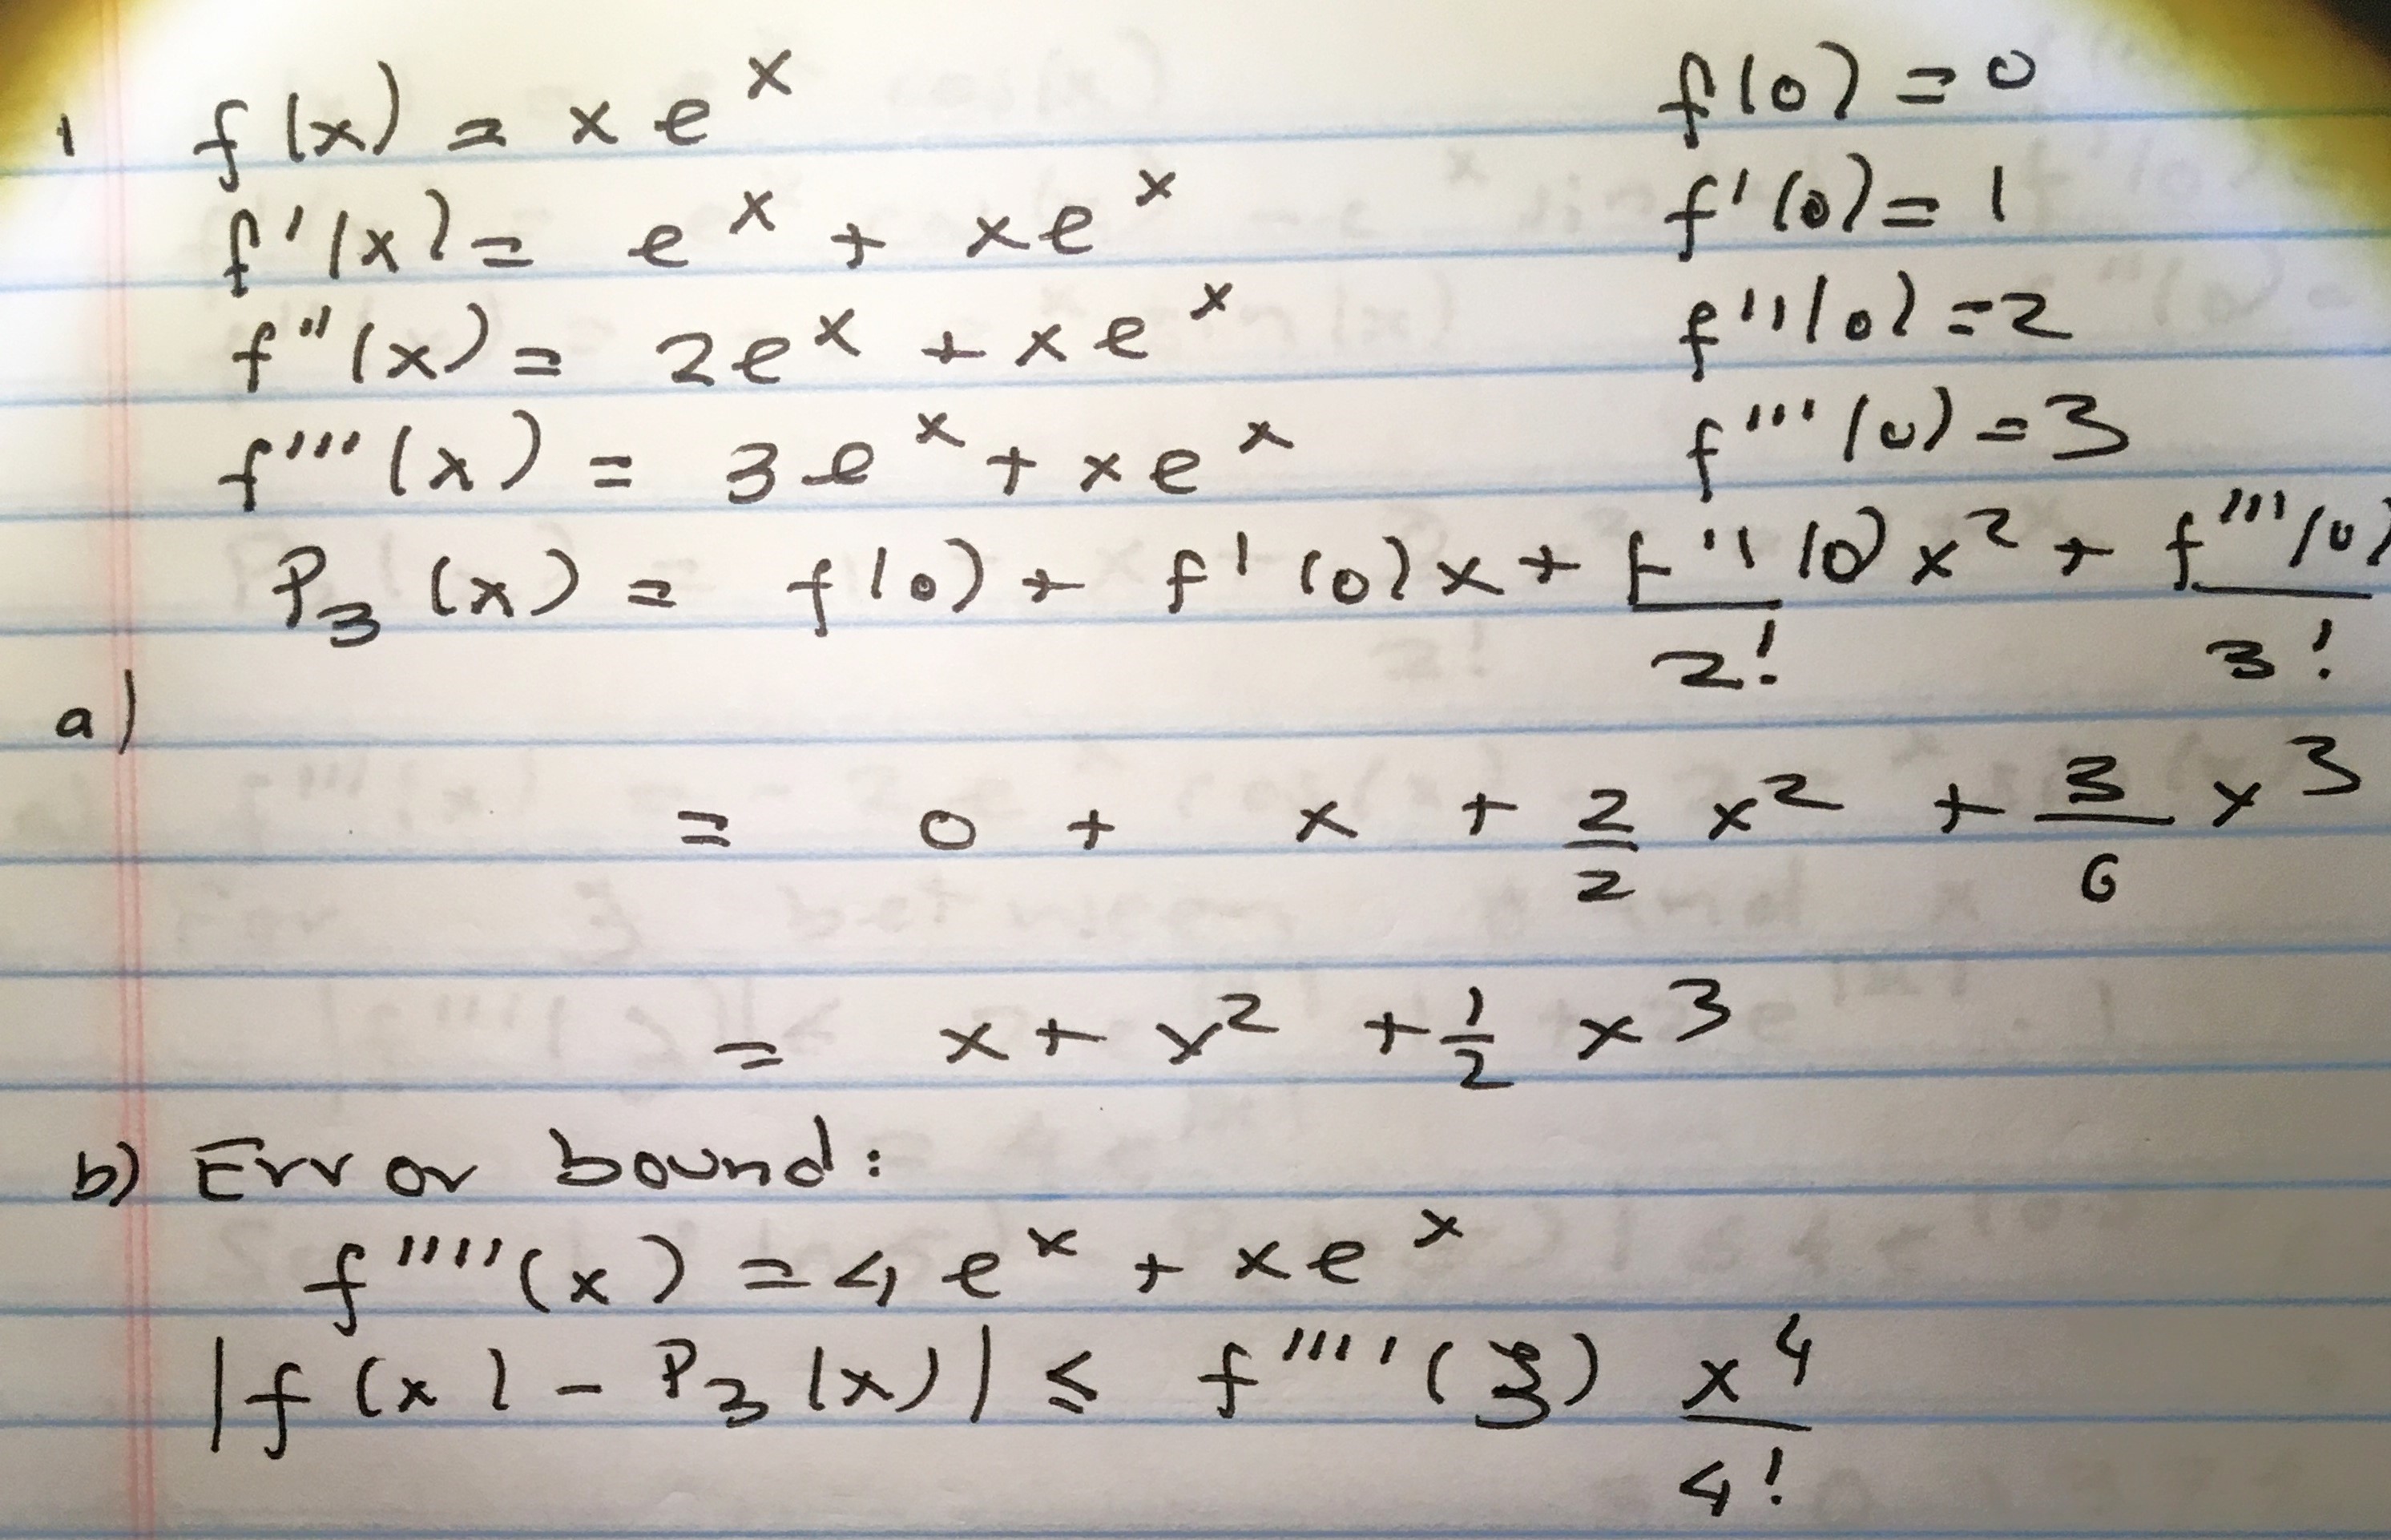 1 f(x) = x e^x f(0) = 0
f'(x) = e^x + x e^x f'(0) = 1
f''(x) = 2e^x + x e^x f''(0) = 2
f'''(x) = 3e^x + x e^x f'''(0) = 3
P_3(x) = f(0) + f'(0)x + f''(0)/2! x^2 + f'''(0)/3!
a)
= 0 + x + 2/2 x^2 + 3/6 x^3
= x + x^2 + 1/2 x^3
b) Error bound:
f''''(x) = 4e^x + x e^x
|f(x) - P_3(x)| ≤ f''''(ξ) x^4/4!